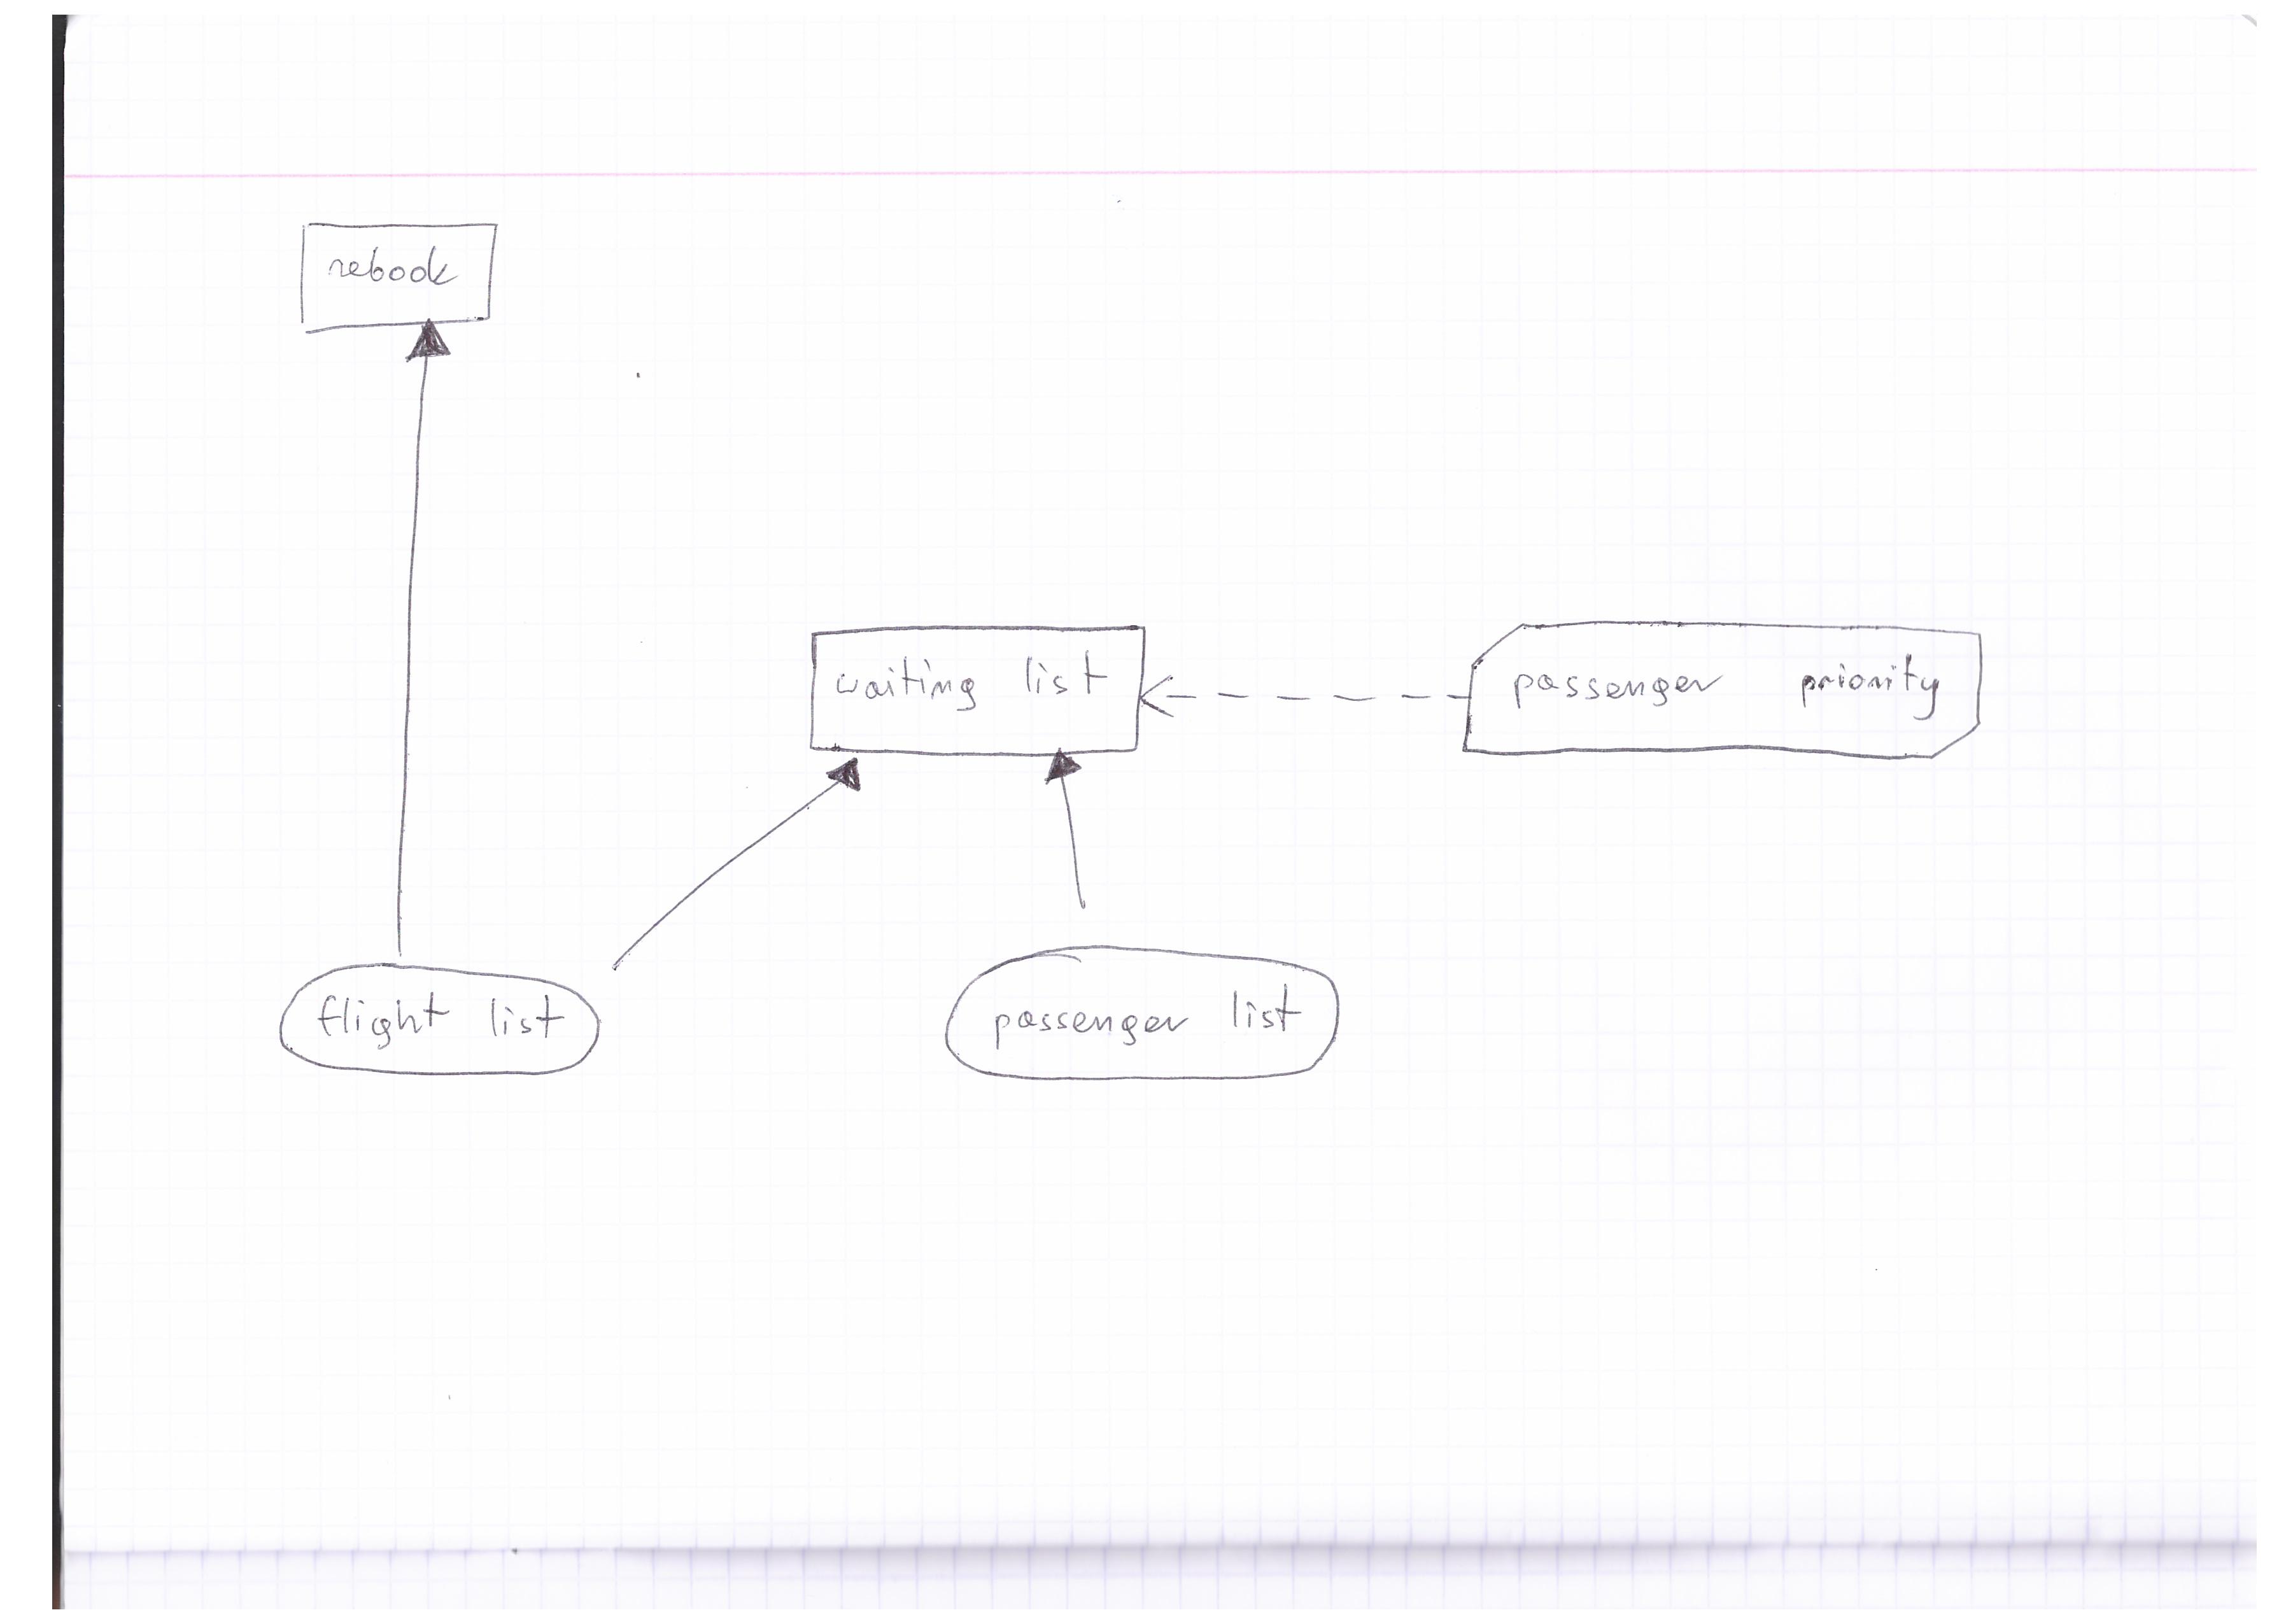 rebook
waiting list
passenger priority
flight list
passenger list